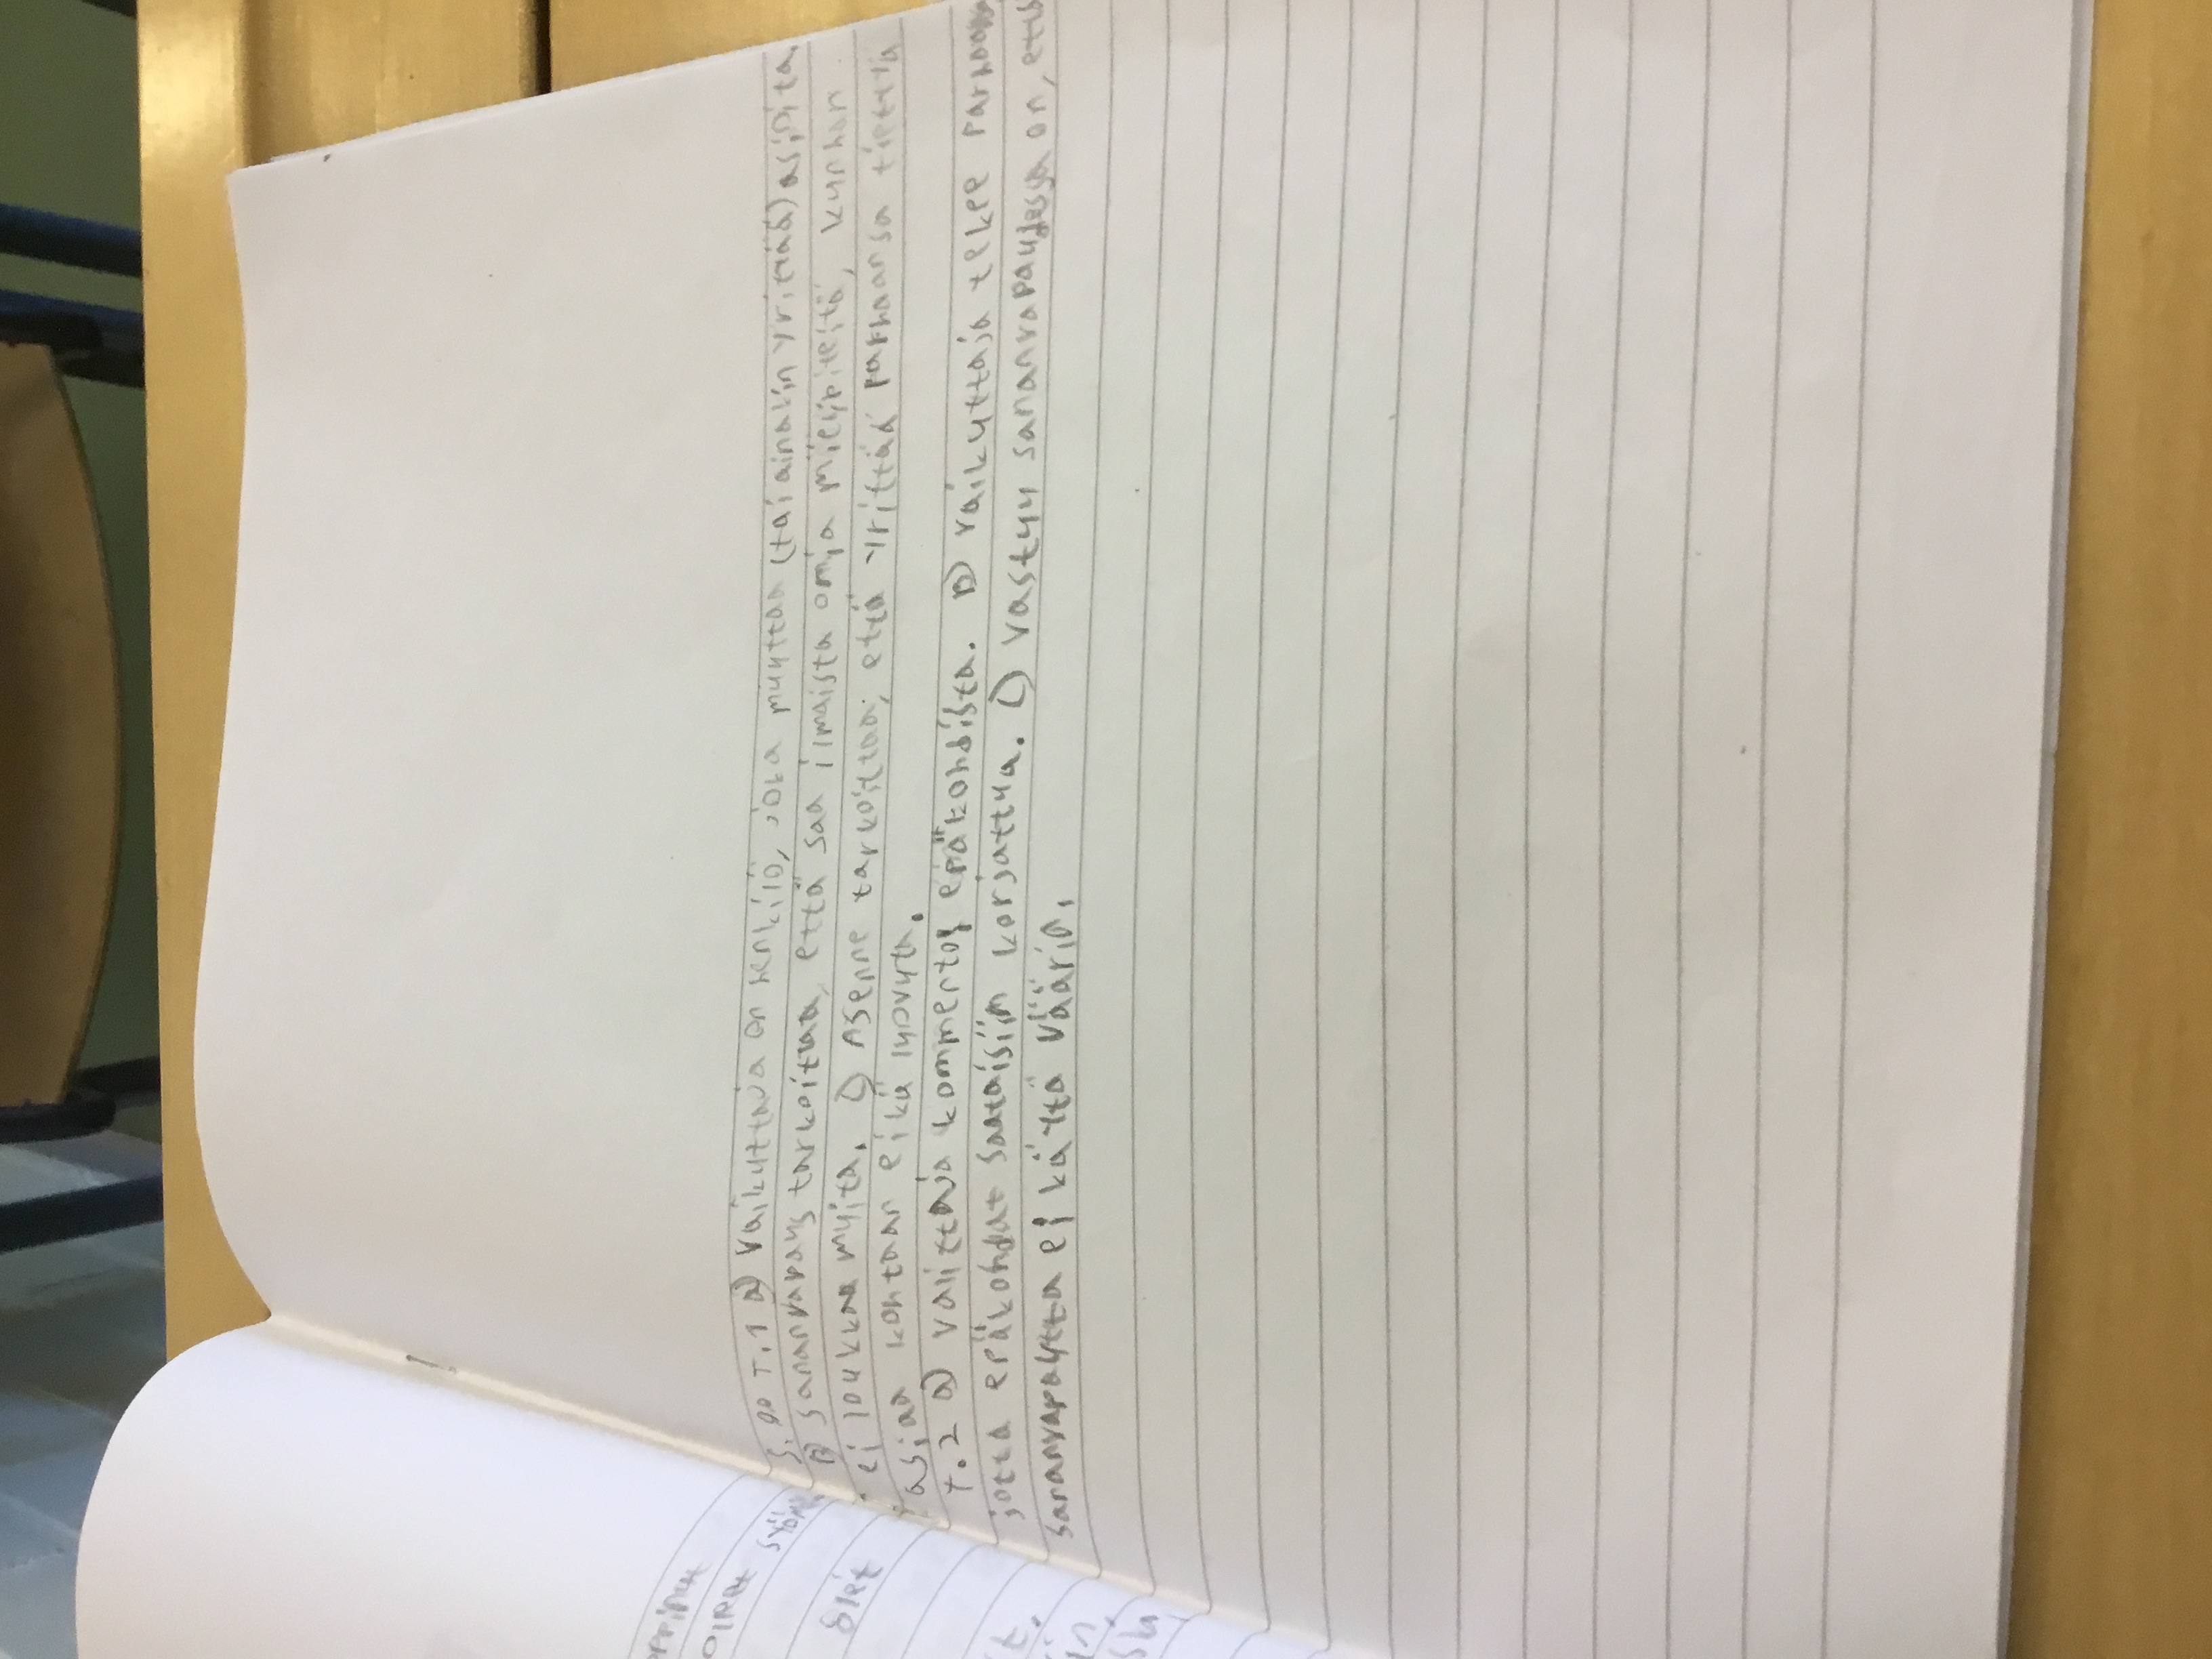 oppinut
olet
siet
t.
in
s. 00 T.1 a) Vaikuttaja on henkilö, joka muuttaa (tai ainakin yrittää) asioita.
B) Sananvapaus tarkoittaa, että saa ilmaista omia mielipiteitä, kunhan
ei loukkaa muita. C) Asenne tarkoittaa, että yrittää parhaansa tiettyä
asiaa kohtaan eikä luovuta.
T.2 a) valittaja kommentoi epäkohdista. B) vaikuttaja tekee parhaansa
jotta epäkohdat saataisiin korjattua. C) Vastuu sananvapaudessa on, että
sananvapautta ei käytä väärin.